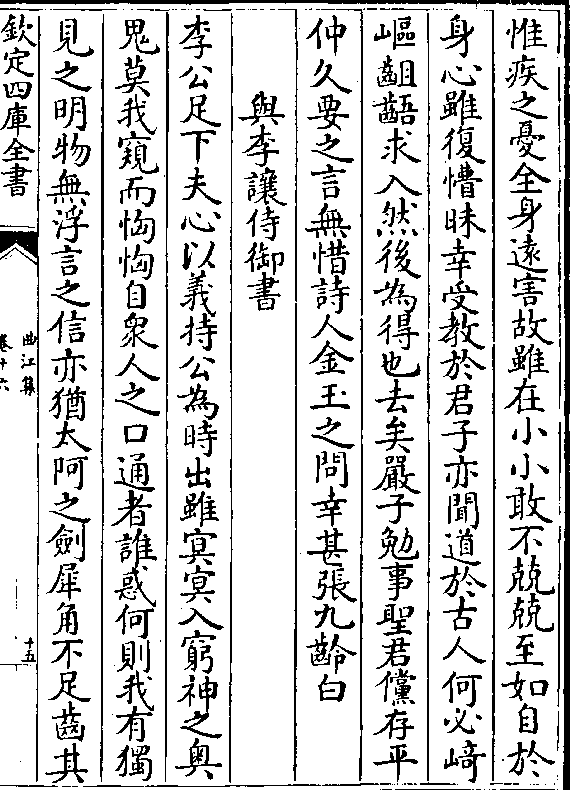 惟疾之憂全身遠害故雖在小小敢不兢兢至如自於
身心雖復懵昧幸受教於君子亦聞道於古人何必﨑
嶇齟齬求入然後為得也去矣嚴子勉事聖君儻存平
仲久要之言無惜詩人金玉之問幸甚張九齡白
與李讓侍御書
李公足下夫心以義持公為時出雖㝠㝠入窮神之奥
鬼莫我窺而恟恟自衆人之口通者誰惑何則我有獨
見之明物無浮言之信亦猶太阿之劍犀角不足齒其
欽定四庫全書
曲江集
卷十六
十五